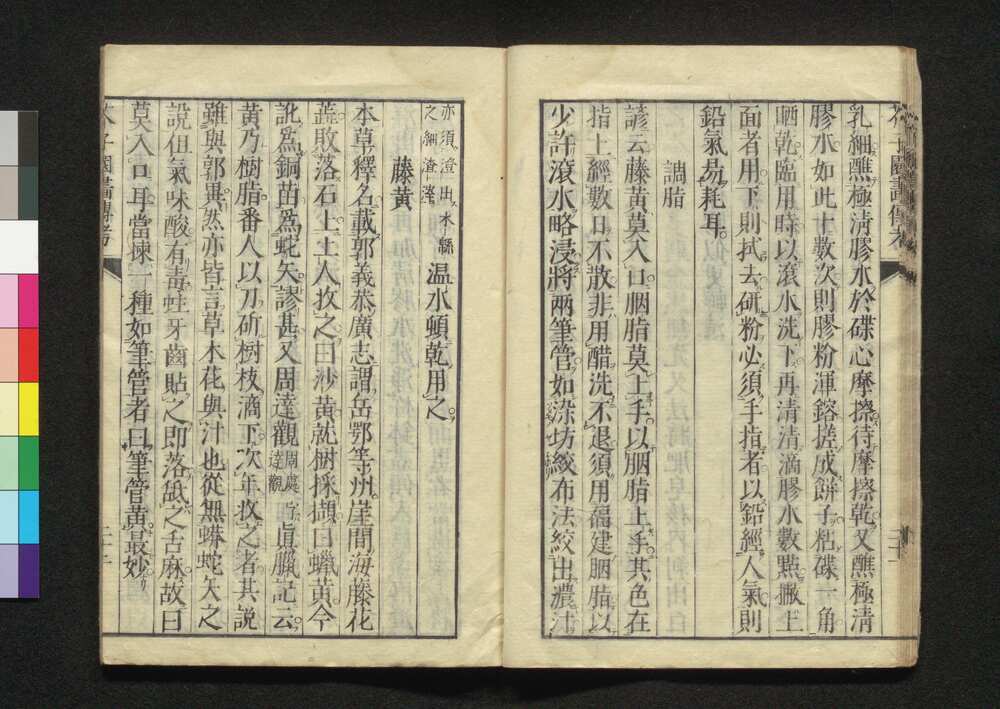 乳細醮極淸膠水於碟心摩擦待摩擦乾又醮極淸
膠水如此十數次則膠粉渾鎔搓成餅子粘碟一角
晒乾臨用時以滾水洗下再清清滴膠水數點撇上
面者用下則拭去研粉必須手指者以鉛經人氣則
鉛氣易耗耳
調脂
諺云藤黄莫入口胭脂莫上手以胭脂上手其色在
指上經數日不散非用醋洗不退須用福建胭脂以
少許滾水略浸將兩筆管如染坊絞布法絞出濃汁
亦須澄出木綿
之細渣
温水頓乾用之
藤黄
本草釋名載郭義恭廣志謂岳鄂等州崖間海藤花
蕋敗落石上土人收之曰沙黄就樹採擷曰蠟黄今
訛爲銅苗爲蛇矢謬甚又周達觀
眞臘記云
黄乃樹脂番人以刀斫樹枝滴下次年收之者其說
雖與郭異然亦皆言草木花與汁也從無蟒蛇矢之
說但氣味酸有毒蛀牙齒貼之即落舐之舌麻故曰
莫入口耳當揀一種如筆管者曰筆管黄最妙